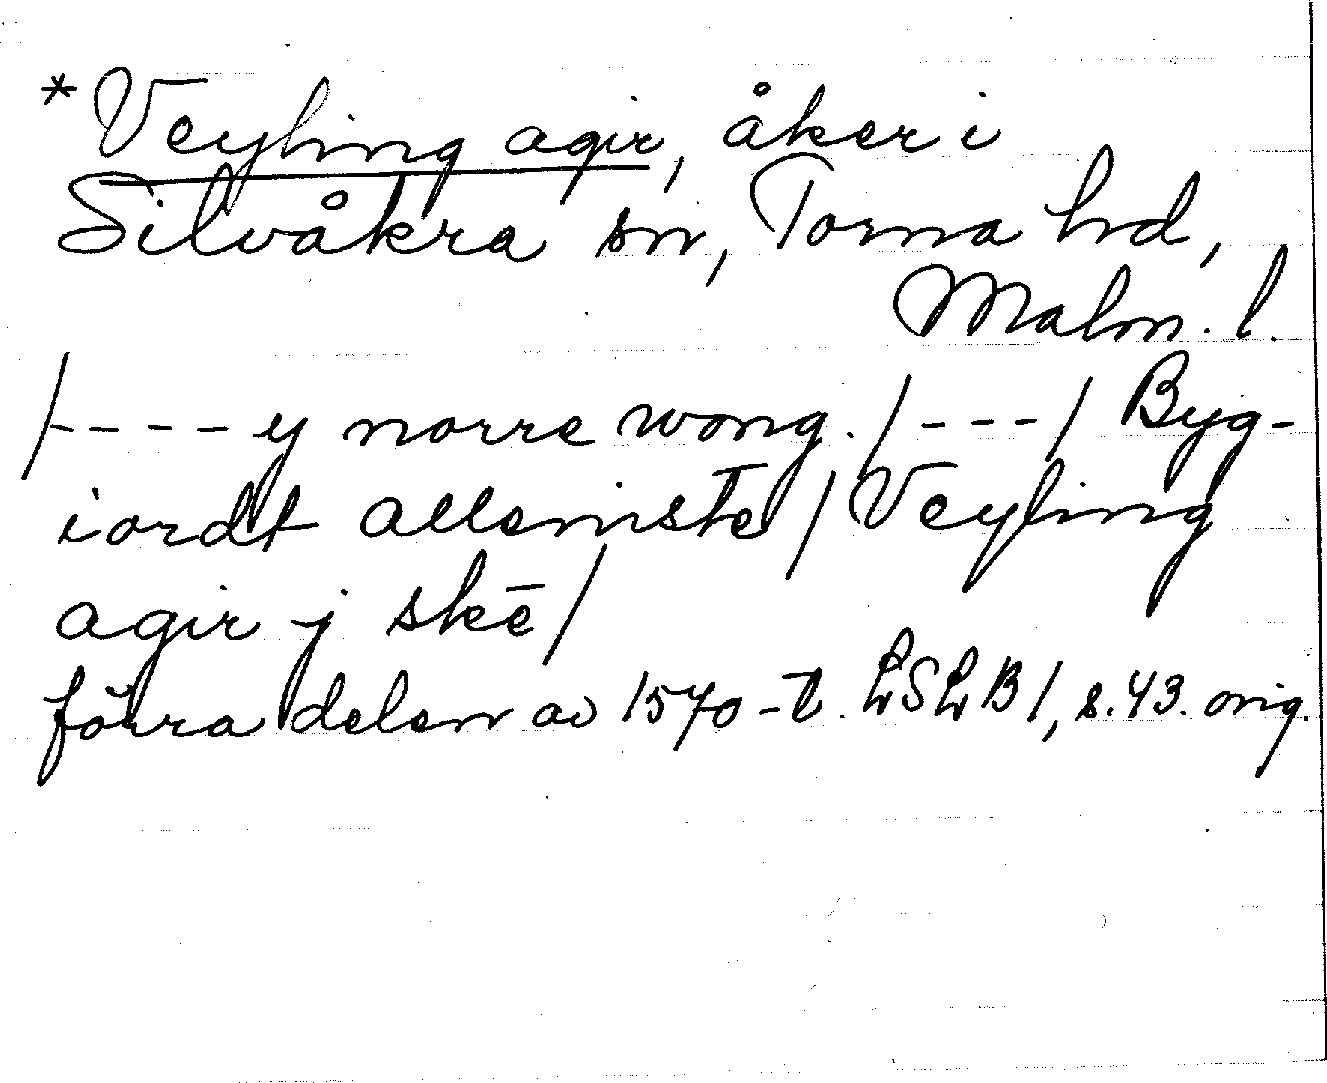 *Veyling agir, åker i
Silvåkra sn, Torna hd,
Malm. l.
/---- y norre wong. /---/ Byg-
iordt allemste / Veyling
agir j skē /
förra delen av 1570-t. LSLB 1, s. 43. orig.